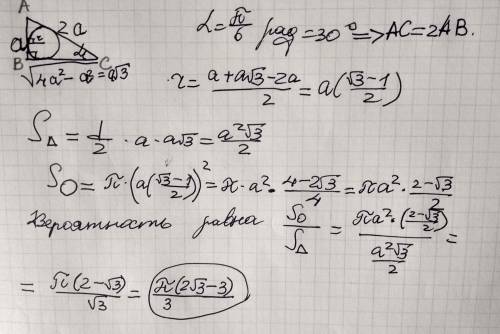 A
a
2a
r
α
B
C
√4a²-a²=a√3
α=π/6 рад=30°=>AC=2AB.
r=(a+a√3-2a)/2=a((√3-1)/2)
S△=1/2·a·a√3=a²√3/2
SO=π·(a((√3-1)/2))²=π·a²·(4-2√3)/4=πa²·(2-√3)/2
Вероятность равна SO/S△=(πa²·((2-√3)/2))/(a²√3/2)=
=π(2-√3)/√3=π(2√3-3)/3